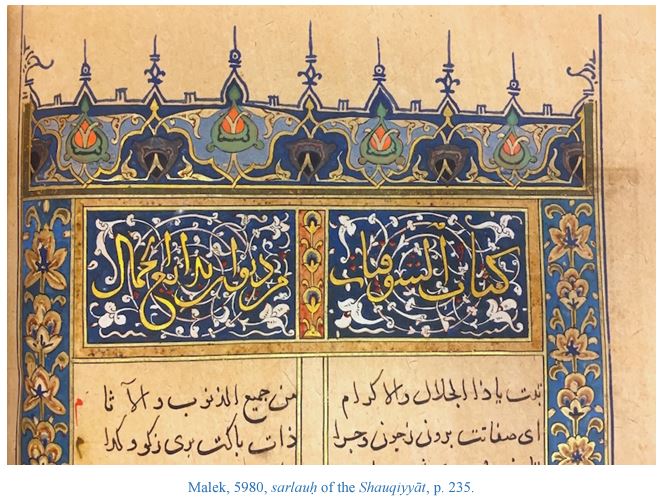 كتاب الشوقيات من ديوان بدايع الجمال
تبت يا ذا الجلال والاكرام من جميع الذنوب و الآثام
اى صفاتت برون زچون و چرا ذات پاكت برى زكو و كدام
Malek, 5980, sarlauḥ of the Shauqiyyāt, p. 235.